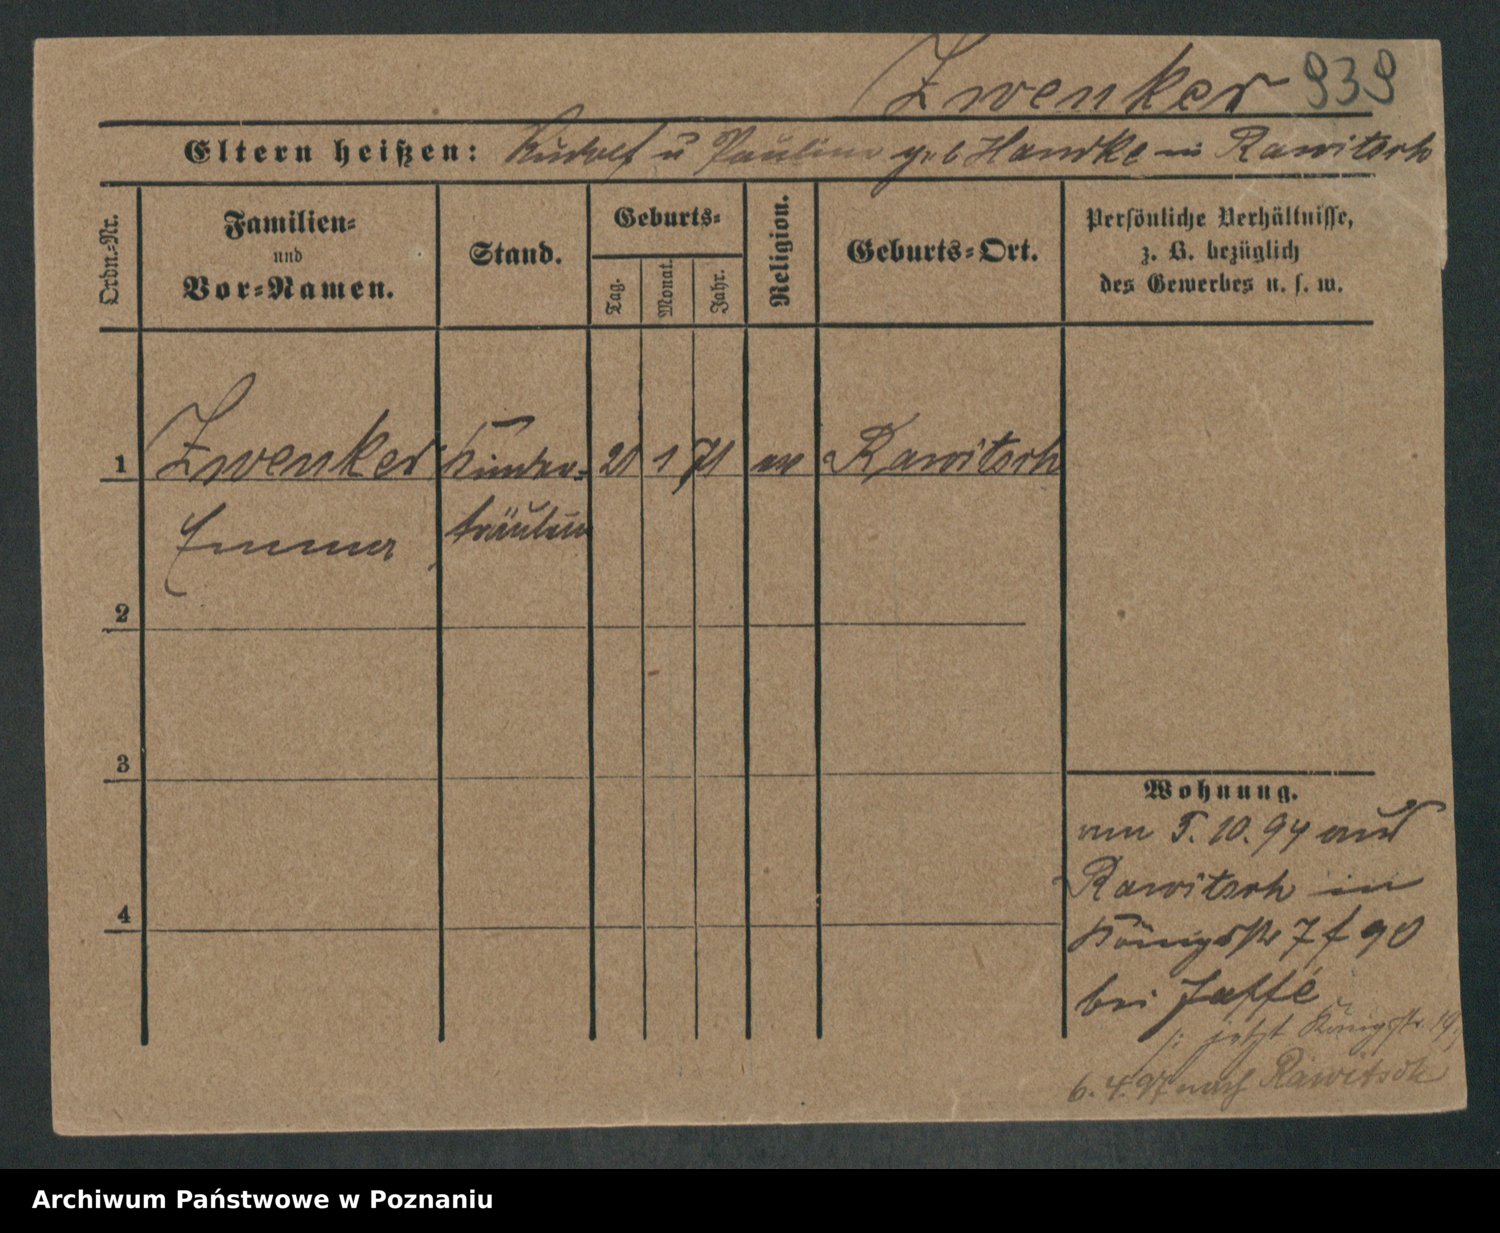 Zwenker 939
Eltern heißen: Rudolf u Pauline geb Handke in Rawitsch
Ordn.-Nr.
Familien-
und
Vor-Namen.
Stand.
Geburts-
Tag.
Monat.
Jahr.
Religion.
Geburts-Ort.
Persönliche Verhältnisse,
z. B. bezüglich
des Gewerbes u. s. w.
1 Zwenker Kinder- 21 1 71 ev Rawitsch
Emma fräulein
2
3
4
Wohnung.
am 5.10.94 aus
Rawitsch in
Königsstr 7 f 90
bei Jaffé
/: jetzt Königsstr. 19,
6.4.97 nach Rawitsch
Archiwum Państwowe w Poznaniu